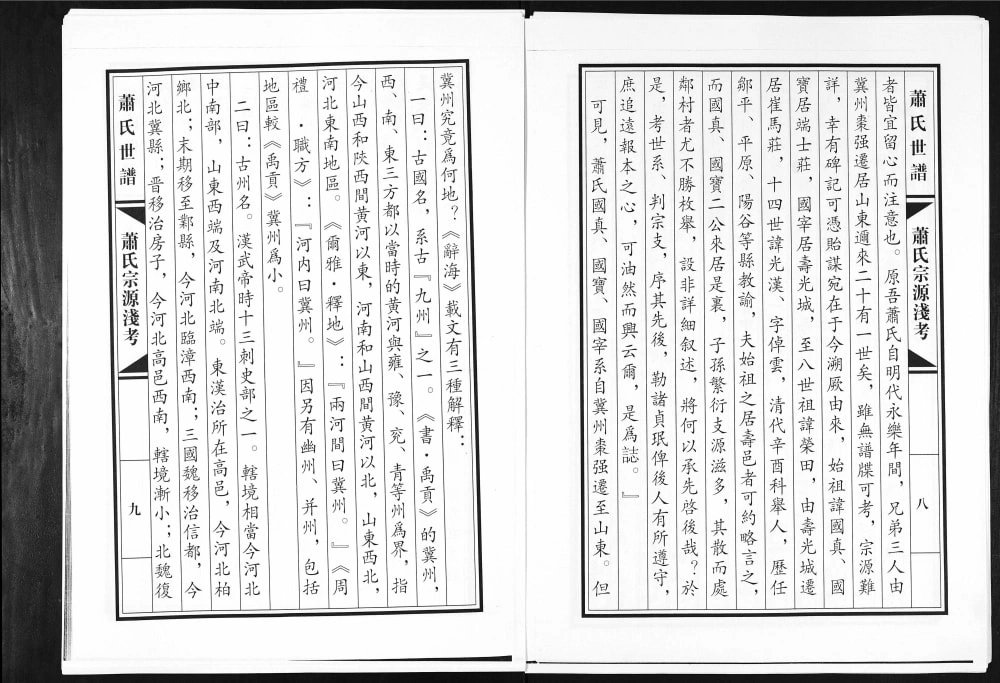 蕭氏世譜
蕭氏宗源淺考
八
者皆宜留心而注意也。原吾蕭氏自明代永樂年間，兄弟三人由
冀州棗强遷居山東邇來二十有一世矣，雖無譜牒可考，宗源難
詳，幸有碑記可憑貽謀宛在于今溯厥由來，始祖諱國真、國
寶居端士莊，國宰居壽光城，至八世祖諱榮田，由壽光城遷
居崔馬莊，十四世諱光漢、字倬雲，清代辛酉科舉人，歷任
鄒平、平原、陽谷等縣教諭，夫始祖之居壽邑者可約略言之，
而國真、國寶二公來居是裏，子孫繁衍支源滋多，其散而處
鄰村者尤不勝枚舉，設非詳細叙述，將何以承先啓後哉？於
是，考世系、判宗支，序其先後，勒諸貞珉俾後人有所遵守，
庶追遠報本之心，可油然而興云爾，是爲誌。』
可見，蕭氏國真、國寶、國宰系自冀州棗强遷至山東。但
冀州究竟爲何地？《辭海》載文有三種解釋：
一曰：古國名，系古『九州』之一。《書·禹貢》的冀州，
西、南、東三方都以當時的黄河與雍、豫、兖、青等州爲界，指
今山西和陝西間黄河以東，河南和山西間黄河以北，山東西北，
河北東南地區。《爾雅·釋地》：『兩河間曰冀州。』《周
禮·職方》：『河内曰冀州。』因另有幽州、并州，包括
地區較《禹貢》冀州爲小。
二曰：古州名。漢武帝時十三刺史部之一。轄境相當今河北
中南部，山東西端及河南北端。東漢治所在高邑，今河北柏
鄉北；末期移至鄴縣，今河北臨漳西南；三國魏移治信都，今
河北冀縣；晋移治房子，今河北高邑西南，轄境漸小；北魏復
蕭氏世譜
蕭氏宗源淺考
九